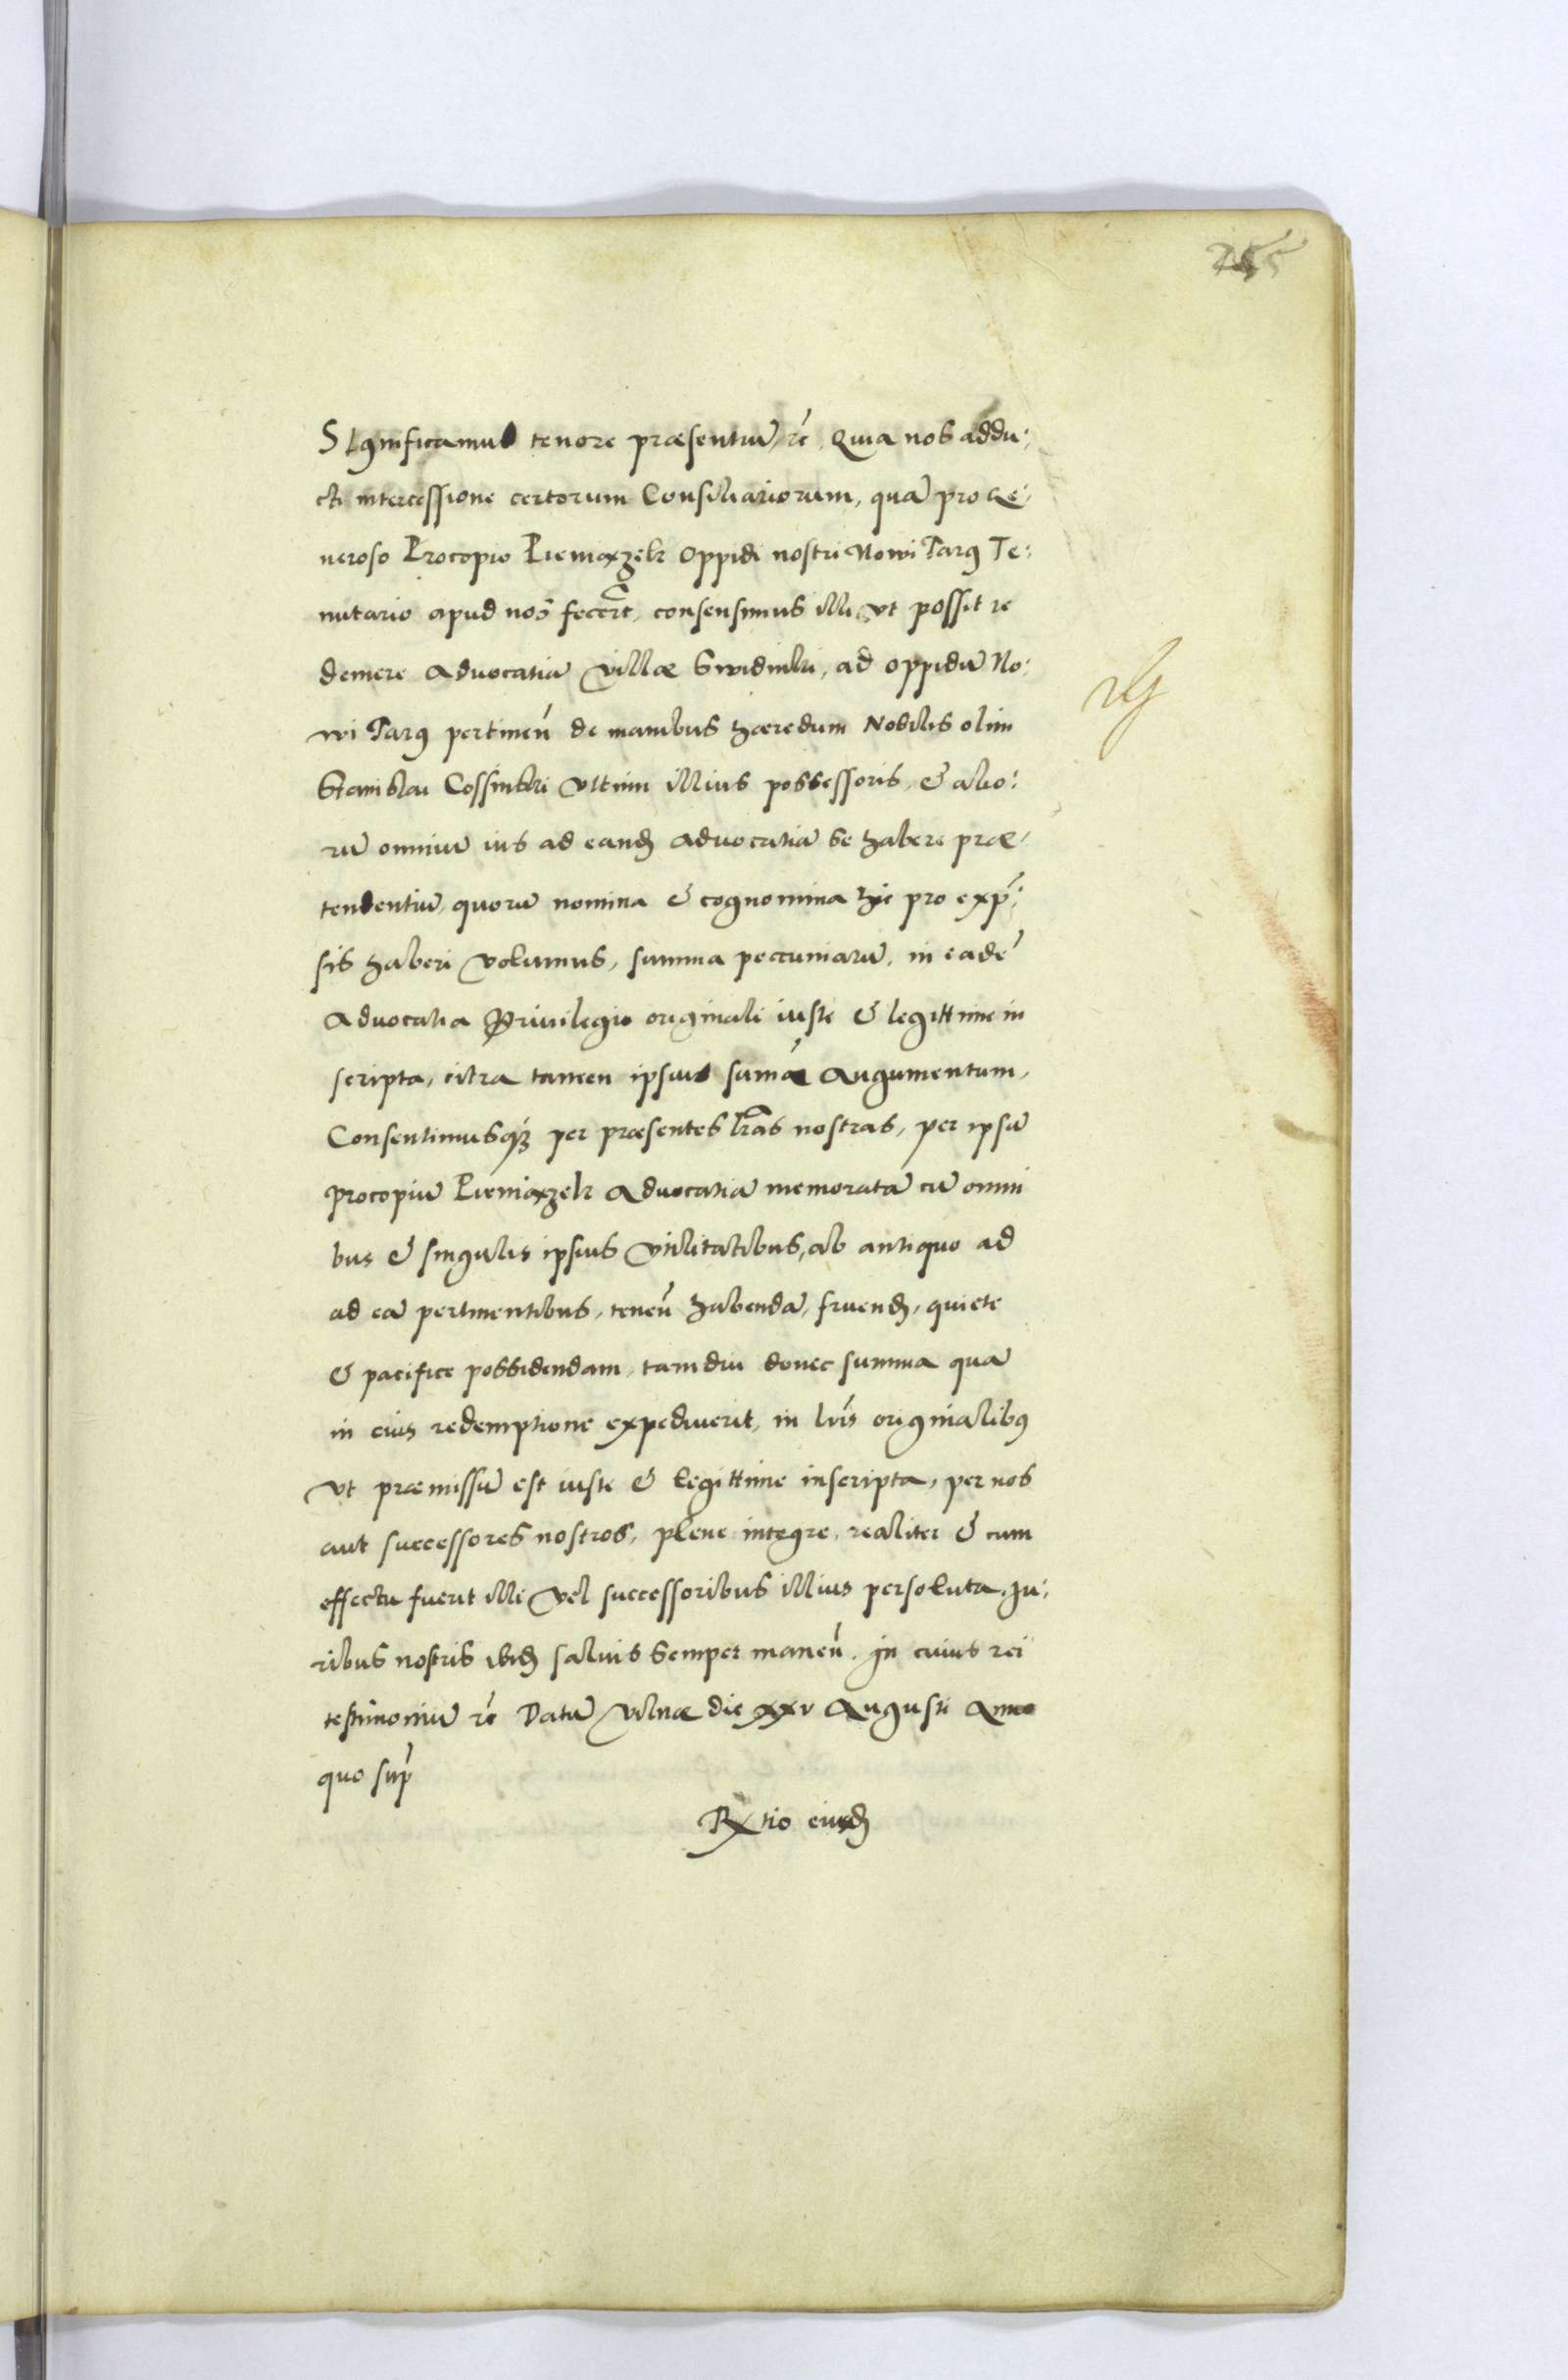 255
SIgnificamus tenore præsentiũ, rc̃. Quia nos addu:
cti intercessione certorum Consiliariorum, quã pro Ge:
neroso Procopio Pieniaxzek Oppidi nostri Nowi Targ Te:
nutario apud nos fecerт̃, consensimus illi vt possit re
demere Aduocatiã villæ Swidinki, ad oppidũ No:
wi Targ pertineñ de manibus hæredum Nobilis olim
Stanislai Cossinski vltimi illius possessoris, & alio:
rũ omniũ ius ad eand Aduocatiã se habere præ:
tendentiũ, quorũ nomina & cognomina hic pro exp̃:
sis haberi volumus, summa pecuniarũ, in eadẽ
Aduocatia Priuilegio originali iuste & legittime in
scripta, citra tamen ipsius sum̃æ Augumentum,
Consentimusq per præsentes lr̃as nostras, per ipsũ
Procopiũ Pieniaxzek Aduocatiã memoratã cũ omni
bus & singulis ipsius vtilitatibus, ab antiquo ad
ad eã pertinentibus, teneñ habendã, fruend, quiete
& pacifice possidendam, tamdiu donec summa quã
in eius redemptione expediuerit, in lr̃is originalibus
vt præmissũ est iuste & legittime inscripta, per nos
aut successores nostros, plene integre, realiter & cum
effectu fuerit illi vel successoribus illius persoluta, Ju:
ribus nostris ibid saluis semper maneñ. In cuius rei
testimoniũ rc̃ Datũ Vilnæ die xxv Augusti Anno
quo sup̃
Rxtio eiusd